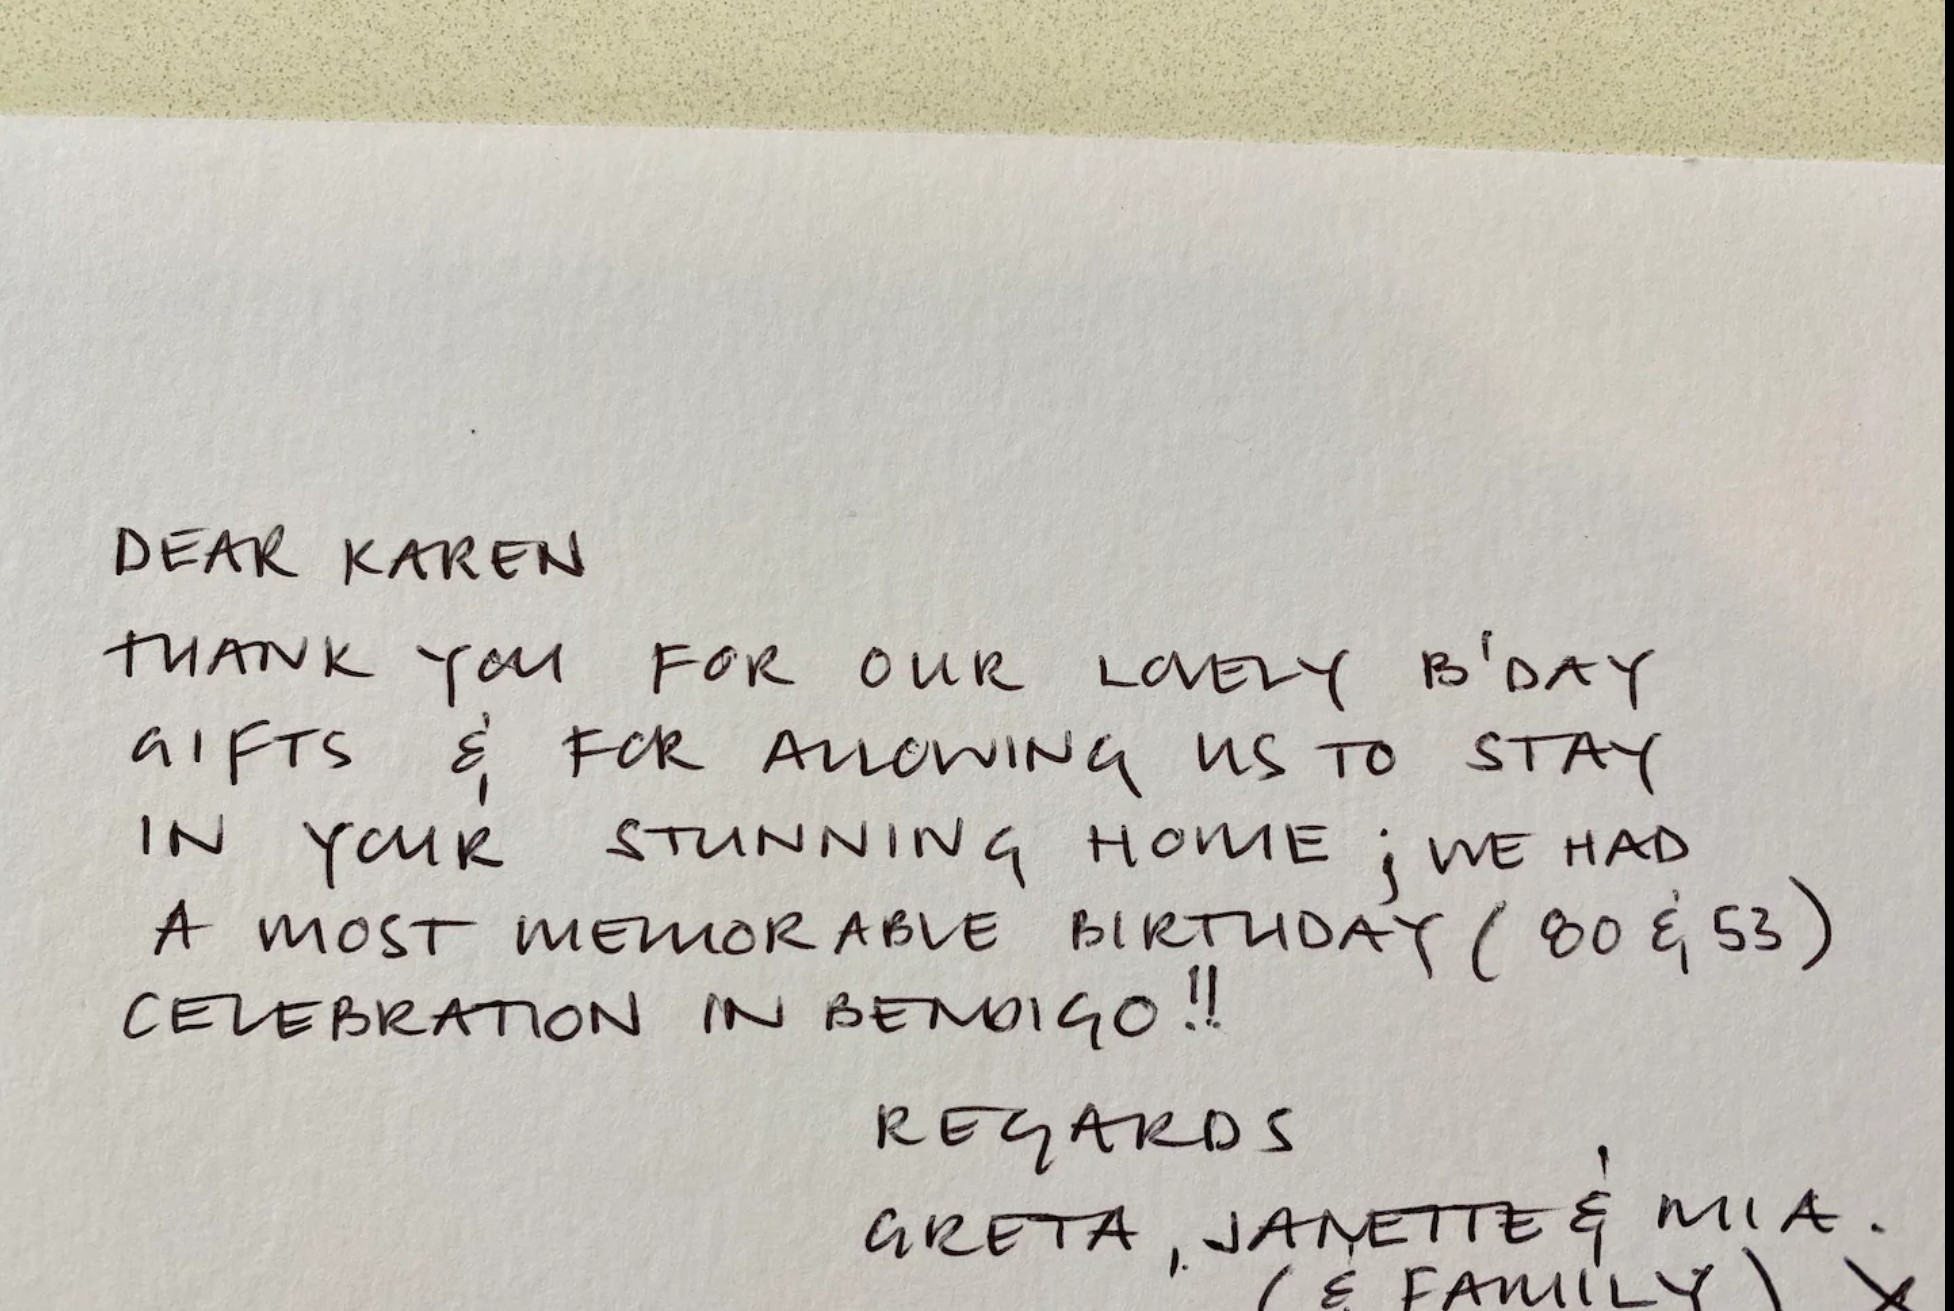 DEAR KAREN
THANK YOU FOR OUR LOVELY B'DAY
GIFTS & FOR ALLOWING US TO STAY
IN YOUR STUNNING HOME ; WE HAD
A MOST MEMORABLE BIRTHDAY ( 80 & 53 )
CELEBRATION IN BENDIGO !!
REGARDS
GRETA , JANETTE & MIA .
( & FAMILY ) X